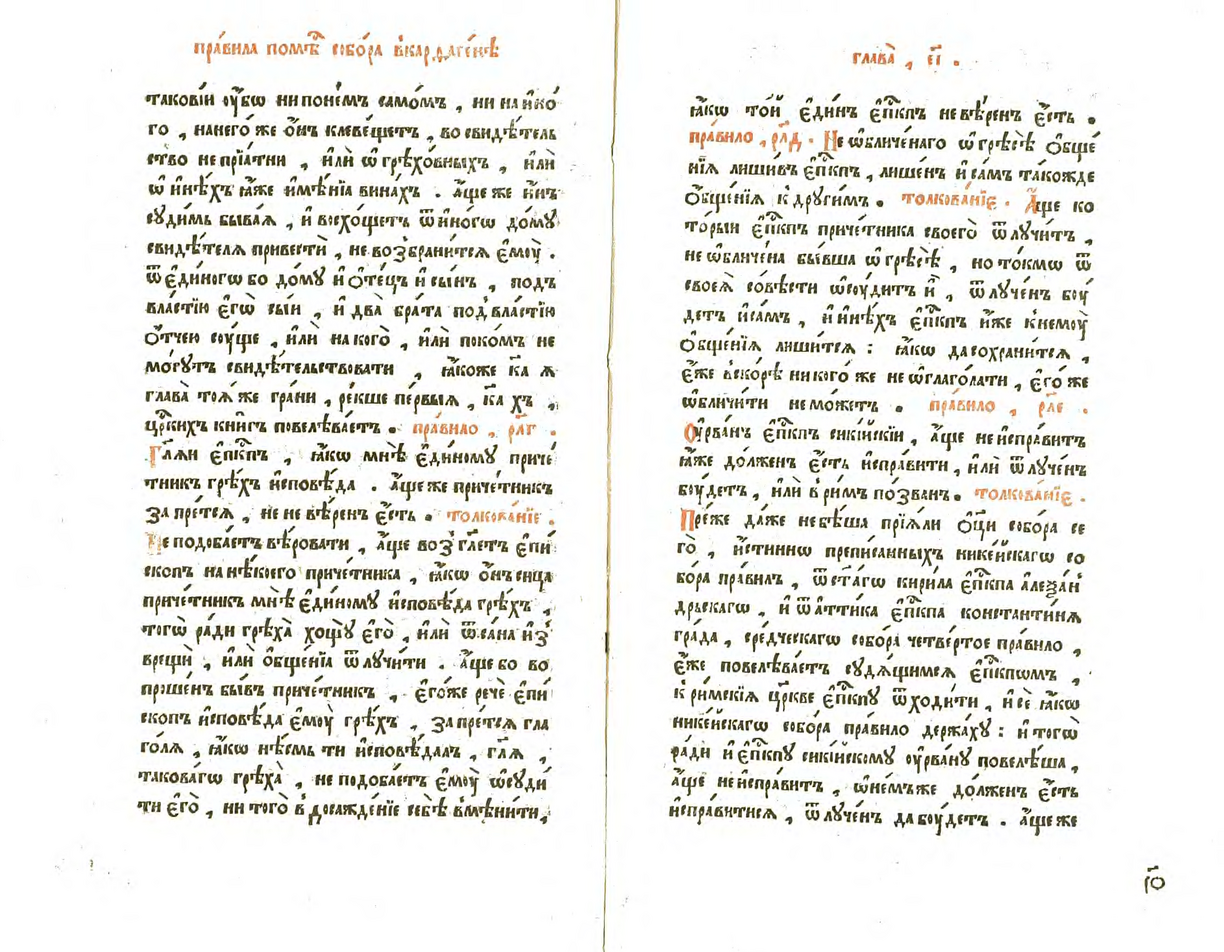 пра́вила помѣ́ с҇ собо́ра в̾карѳаге́нѣ
такові́и ᲂу҆́бѡ нипоне́мъ само́мъ , ни наи҆но́
го , нанего́ же ѻ҆́нъ клевѣ́щетъ , во свидѣ́тель
ство не прїѧ́тни , и҆лѝ ѡ҆ грѣхо́вныхъ , и҆лѝ
ѡ҆ и҆нѣ́хъ ꙗ҆́же и҆мѣ́нїѧ вина́хъ . а҆́ще же и҆́нъ
суди́мь быва́ѧ , и҆ восхо́щетъ ѿи҆но́гѡ до́мꙋ
свидѣ́телѧ привестѝ , не воз̾брани́тсѧ є҆мꙋ̀ .
ѿ є҆ди́ногѡ бо до́мꙋ и҆ ѻ҆те́цъ и҆ сы́нъ , подъ
вла́стїю є҆гѡ̀ сы́и , и҆ два̀ бра́та под̾вла́стїю
ѻ҆́тчею сꙋ́ще , и҆лѝ на кого̀ , и҆лѝ поко́мъ не
мо́гꙋтъ свидѣ́тельствовати , ꙗ҆́коже к҃а ѧ
глава̀ тоѧ́ же гра́ни , ре́кше пе́рвыѧ , к҃а хъ ,
цр҃кихъ кни́гъ повелѣва́етъ . пра́вило , рл҃г .
Гл҃ѧи є҆пⷭ҇кпъ , ꙗ҆́кѡ мнѣ̀ є҆ди́номꙋ приче́
тникъ грѣ́хъ и҆сповѣ́да . а҆́ще же приче́тникъ
запрети́сѧ , не не вѣ́ренъ є҆́сть . толкова́нїе .
Не подоба́етъ вѣ́ровати , а҆́ще воз̾гл҃етъ є҆пи́
скопъ на нѣ́коего приче́тника , ꙗ҆́кѡ ѻ҆́нъ сица
приче́тникъ мнѣ̀ є҆ди́номꙋ и҆сповѣ́да грѣ́хъ ,
тогѡ̀ ра́ди грѣха̀ хощꙋ̀ є҆го̀ , и҆лѝ ѿ са́на и҆з̾
врещѝ , и҆лѝ ѻ҆бще́нїѧ ѿлꙋчи́ти . а҆́ще бо во
проше́нъ бы́въ приче́тник , є҆го́же речѐ є҆пи́
скопъ и҆сповѣ́да є҆мꙋ̀ грѣ́хъ , запрети́сѧ гла
го́лѧ , ꙗ҆́кѡ нѣ́смь ти и҆сповѣ́далъ , гл҃ѧ ,
такова́гѡ грѣха̀ , не подоба́етъ є҆мꙋ̀ ѡ҆сꙋди́
ти є҆го̀ , ни того̀ в̾ досажде́нїе себѣ̀ в̾мѣни́ти,
глава̀ , є҃і .
ꙗ҆́кѡ то́й є҆ди́нъ є҆пⷭ҇кпъ не вѣ́ренъ є҆́сть .
пра́вило , рл҃д . Не ѡ҆бличе́наго ѡ҆ грѣсѣ̀ ѻ҆бще́
нїѧ лиши́въ є҆пⷭ҇кпъ , лише́нъ и҆ са́мъ тако́жде
ѻ҆бще́нїѧ к̾ други́мъ . толкова́нїе . А҆́ще ко
то́рыи є҆пⷭ҇кпъ приче́тника своего̀ ѿлꙋчи́тъ ,
не ѡ҆бличе́на бы́вша ѡ҆ грѣсѣ̀ , но то́кмѡ ѿ
своеѧ̀ со́вѣсти ѡ҆сꙋ́дитъ и҆̀ , ѿлꙋче́нъ бꙋ́
детъ и҆са́мъ , и҆ и҆нѣ́хъ є҆пⷭ҇кпъ и҆́же к̾немꙋ̀
ѻ҆бще́нїѧ лиши́тсѧ : ꙗ҆́кѡ да сохрани́тсѧ ,
є҆́же в̾ско́рѣ нико́го же не ѡ҆глаго́лати , є҆го́ же
ѡ҆бличи́ти не мо́жетъ . пра́вило , рл҃е .
Оу҆рва́нъ є҆пⷭ҇кпъ сики́йскїи , а҆́ще не и҆спра́витъ
ꙗ҆́же до́лженъ є҆́сть и҆спра́вити , и҆лѝ ѿлꙋче́нъ
бꙋ́детъ , и҆лѝ в̾ ри́мъ по́званъ . толкова́нїе .
Пре́же да́же не бѣ́ша прїѧ́ли ѻ҆ц҃и собо́ра се
го̀ , и҆́стиннѡ препи́санныхъ нике́йскагѡ со
бо́ра пра́вилъ , ѿ ст҃а́гѡ кири́ла є҆пⷭ҇кпа алеѯан́
дрьскагѡ , и҆ ѿ а҆ттика є҆пⷭ҇кпа константи́нѧ
гра́да , сре́дческагѡ собо́ра четве́ртое пра́вило ,
є҆́же повелѣва́етъ сꙋдѧ́щимсѧ є҆пⷭ҇кпѡмъ ,
к̾ ри́мскїѧ цр҃кве є҆пⷭ҇кпꙋ ѿходи́ти , и҆ сѐ ꙗ҆́кѡ
нике́йскагѡ собо́ра пра́вило держа́хꙋ : и҆ тогѡ̀
ра́ди и҆ є҆пⷭ҇кпꙋ сики́йскомꙋ ᲂу҆рва́нꙋ повелѣ́ша ,
а҆́ще не и҆спра́витъ , ѡ҆не́мъже до́лженъ є҆́сть
и҆спра́витисѧ , ѿлꙋче́нъ да бꙋ́детъ . а҆́ще же
ро҃